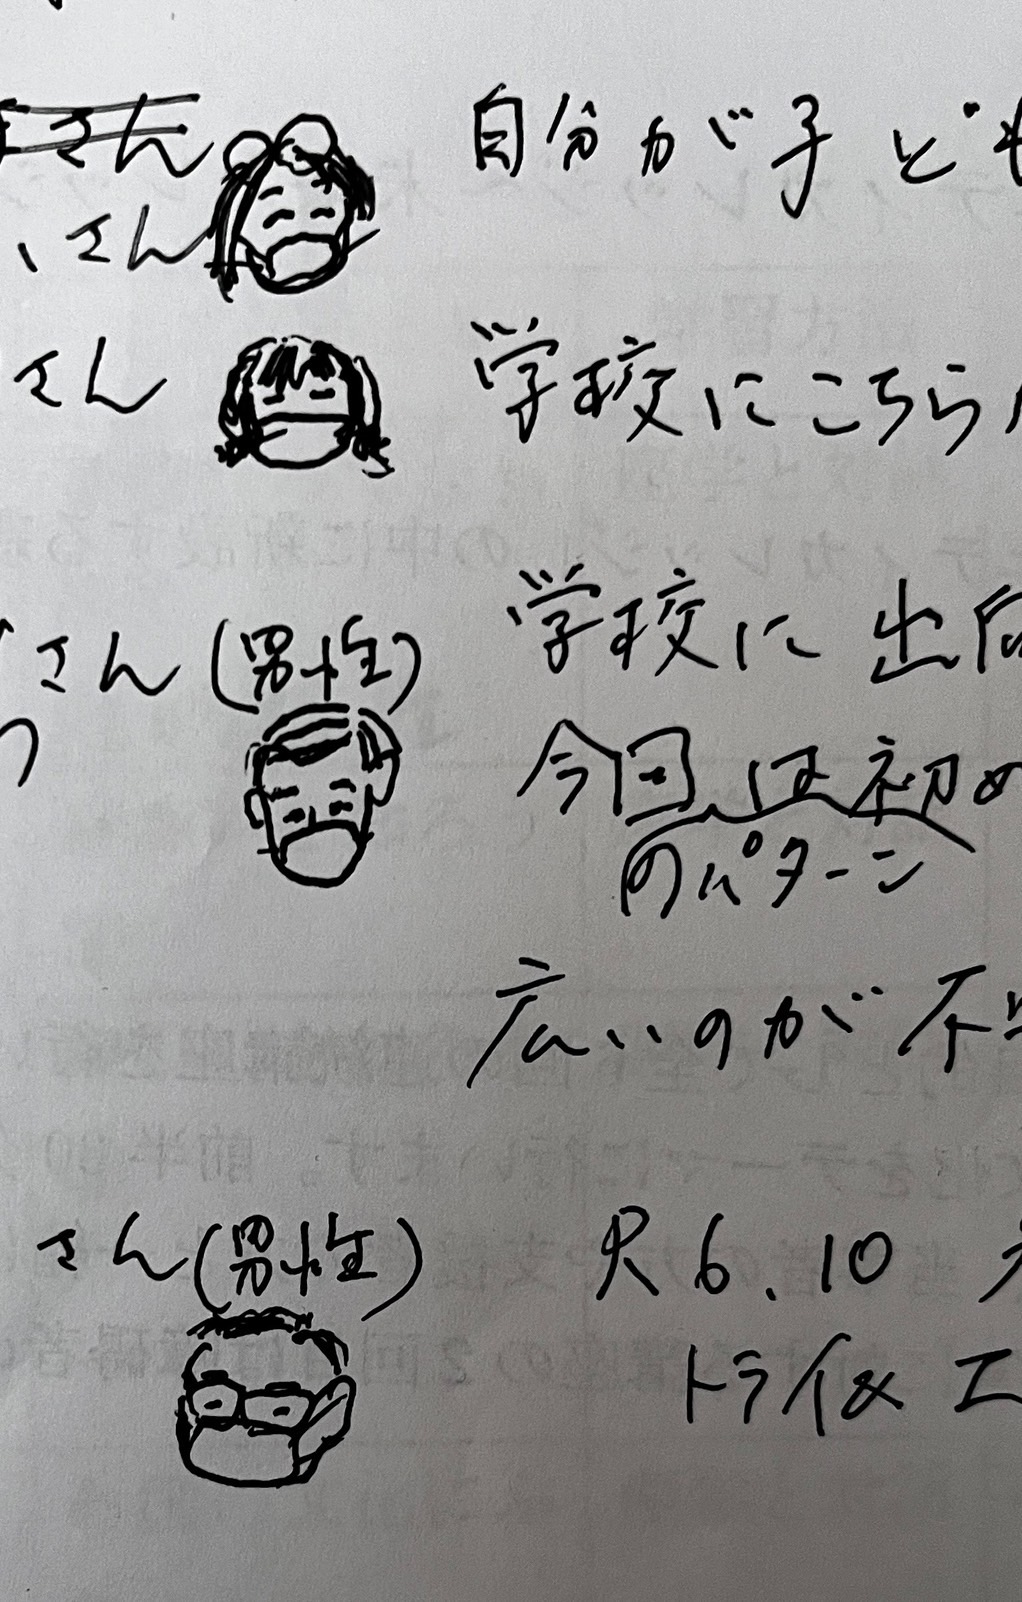 さん
自分が子ども
さん
さん
学校にこちら
さん(男性)
学校に出向
今回は初め
のパターン
広いのが不
さん(男性)
R6.10
トライ&エ